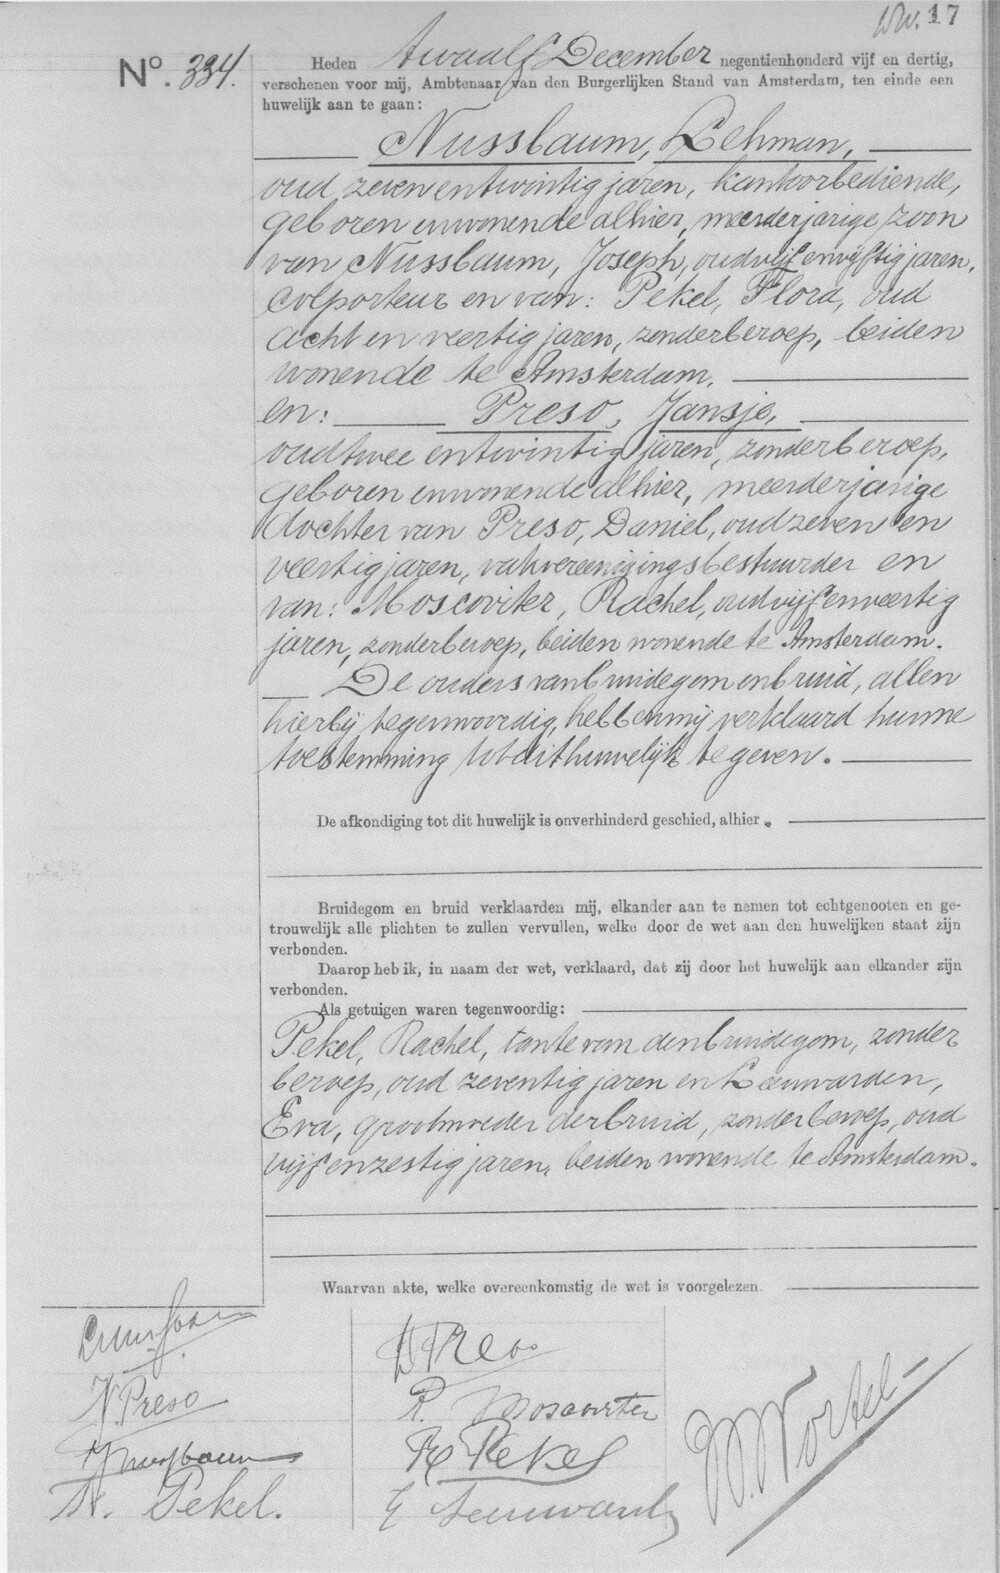 WW. 17
No. 334.
Heden twaalf December negentienhonderd vijf en dertig,
verschenen voor mij, Ambtenaar van den Burgerlijken Stand van Amsterdam, ten einde een
huwelijk aan te gaan:
Nussbaum, Lehman,
oud zeven en twintig jaren, kantoorbediende,
geboren en wonende alhier, meerderjarige zoon
van Nussbaum, Joseph, oud vijf en vijftig jaren,
colporteur en van: Pekel, Flora, oud
acht en veertig jaren, zonder beroep, beiden
wonende te Amsterdam,
en: Preso, Jansje,
oud twee en twintig jaren, zonder beroep,
geboren en wonende alhier, meerderjarige
dochter van Preso, Daniel, oud zeven en
veertig jaren, vakvereenigingsbestuurder en
van: Moscoviter, Rachel, oud vijf en veertig
jaren, zonder beroep, beiden wonende te Amsterdam.
De ouders van bruidegom en bruid, allen
hierbij tegenwoordig, hebben mij verklaard hunne
toestemming tot dit huwelijk te geven.
De afkondiging tot dit huwelijk is onverhinderd geschied, alhier.
Bruidegom en bruid verklaarden mij, elkander aan te nemen tot echtgenooten en ge-
trouwelijk alle plichten te zullen vervullen, welke door de wet aan den huwelijken staat zijn
verbonden.
Daarop heb ik, in naam der wet, verklaard, dat zij door het huwelijk aan elkander zijn
verbonden.
Als getuigen waren tegenwoordig:
Pekel, Rachel, tante van den bruidegom, zonder
beroep, oud zeventig jaren en Leeuwarden,
Eva, grootmoeder der bruid, zonder beroep, oud
vijf en zestig jaren, beiden wonende te Amsterdam.
Waarvan akte, welke overeenkomstig de wet is voorgelezen.
LNussbaum
J. Preso
JNussbaum
Pekel.
D Preso
R. Moscoviter
R Pekel
E Leeuwarden
Wortel